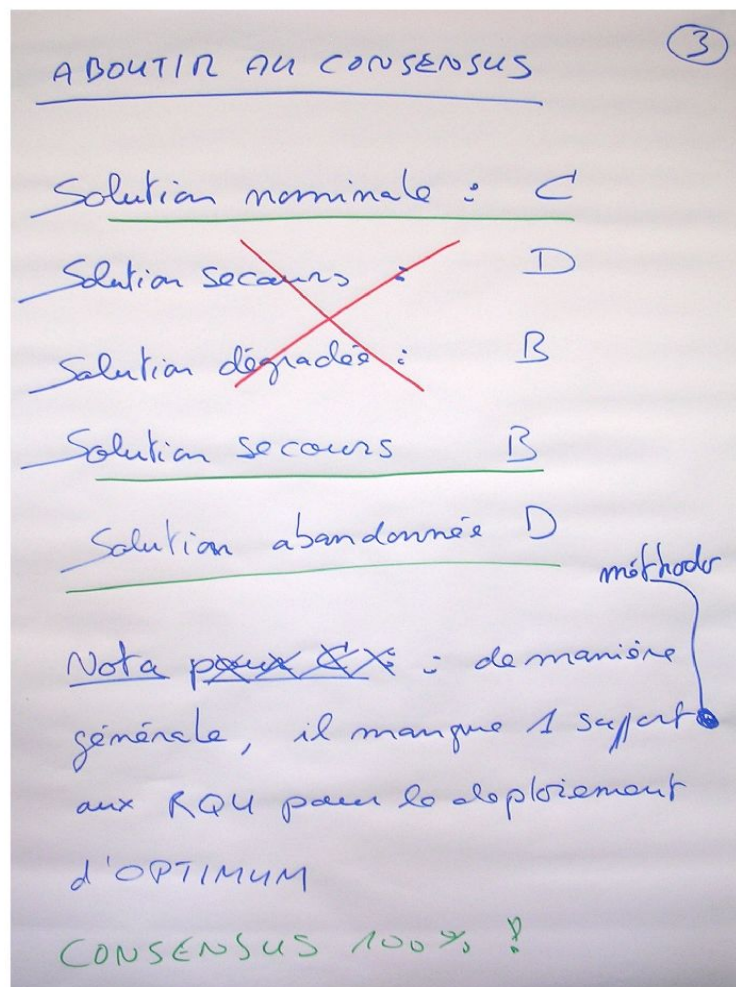 3
ABOUTIR AU CONSENSUS
Solution nominale : C
Solution secours : D
Solution dégradée : B
Solution secours B
Solution abandonnée D
méthodo
Nota pour C : : de manière
générale, il manque 1 support
aux RQU pour le deploiement
d'OPTIMUM
CONSENSUS 100% !